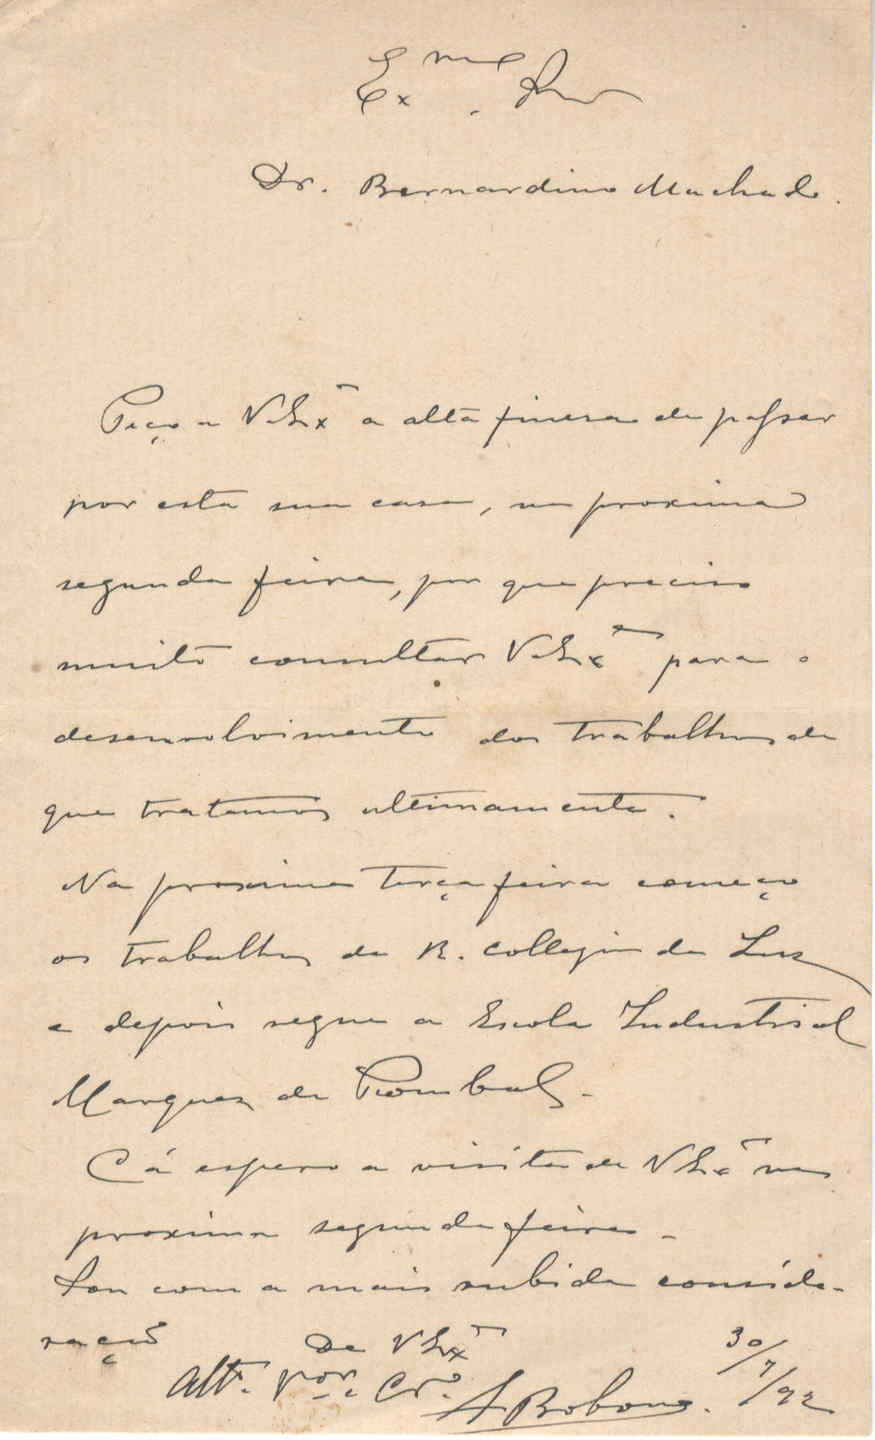 Ex.mo Snr
Dr. Bernardino Machado.
Peço a V. Exª a alta finesa de passar
por esta sua casa, na proxima
segunda feira, por que preciso
muito consultar V. Exª para o
desenvolvimento dos trabalhos de
que tratamos ultimamente.
Na proxima terça feira começo
os trabalhos do R. Collegio da Luz
e depois segue a Escola Industrial
Marquez de Pombal.
Cá espero a visita de V Exª na
proxima segunda feira.
Sou com a mais subida conside-
ração De V Exª 30/7/92
Attº. Vor. Crº. A Bobone.